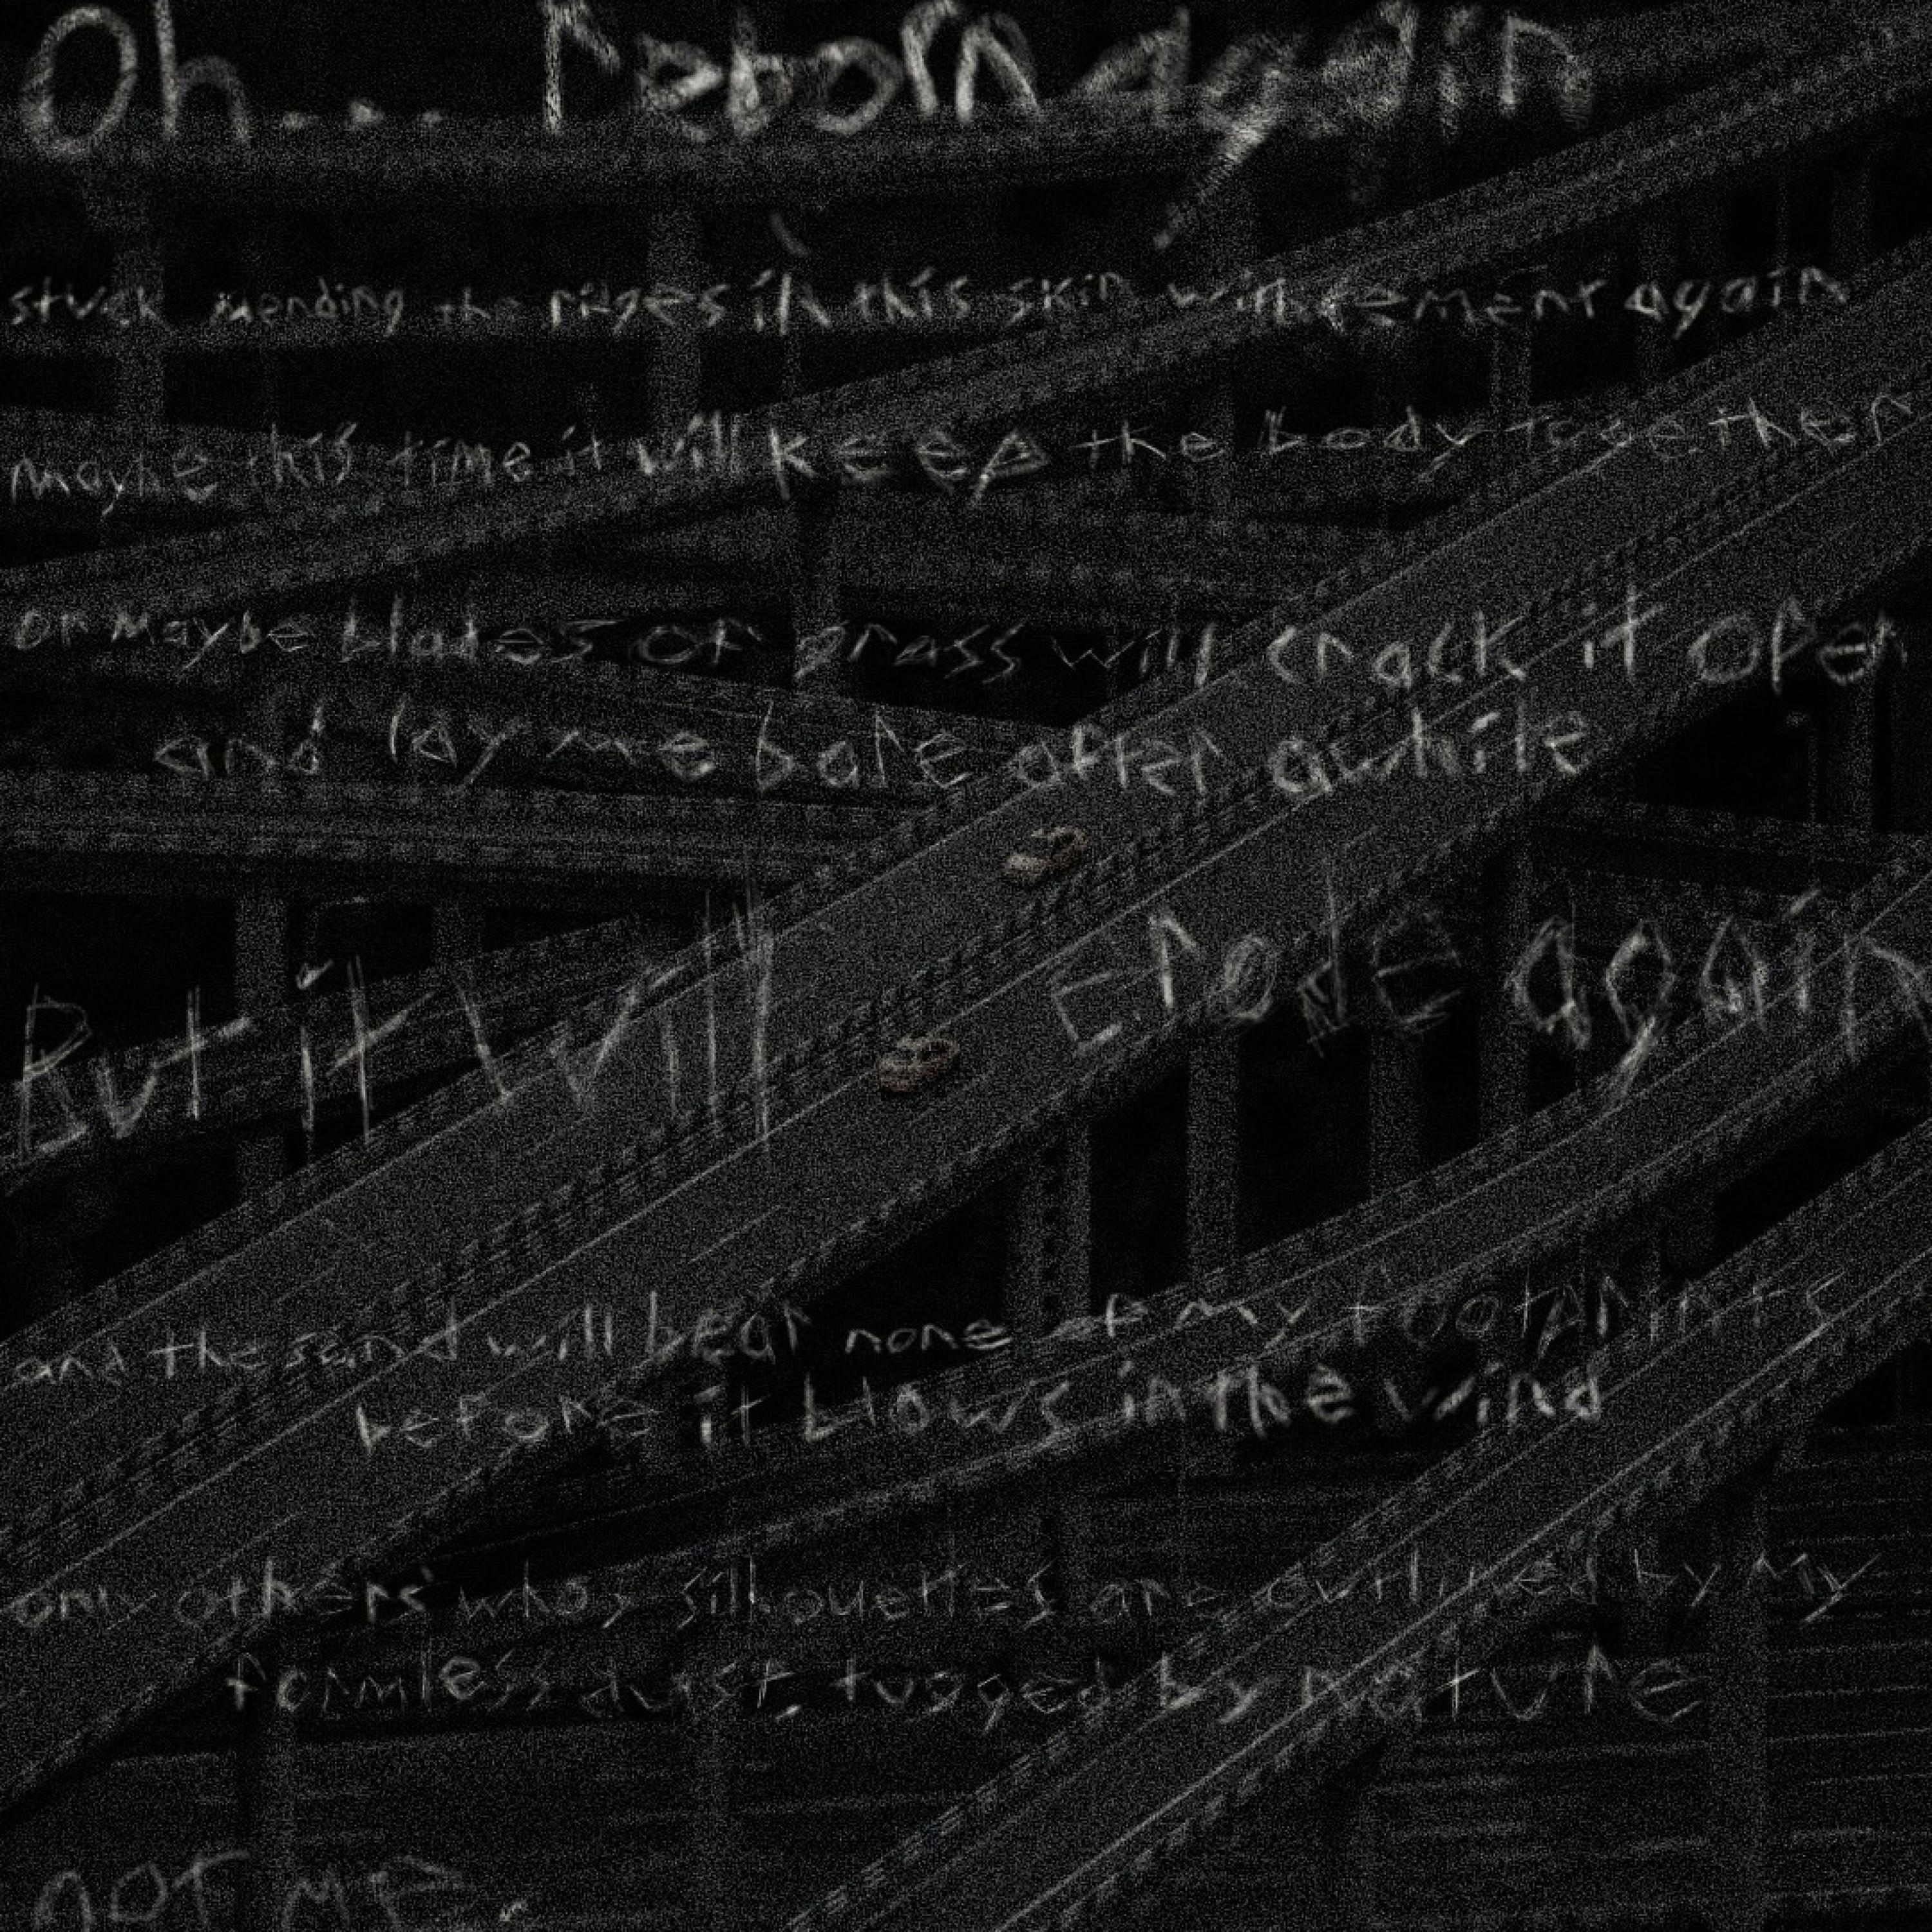 Oh... reborn again
stuck mending the ridges in this skin with cement again
maybe this time it will keep the body together
or maybe blades of grass will crack it open
and lay me bare after awhile
But it will erode again
and the sand will bear none of my footprints
before it blows in the wind
only others whos silhouettes are outlined by my
formless dust, tugged by nature
not me.